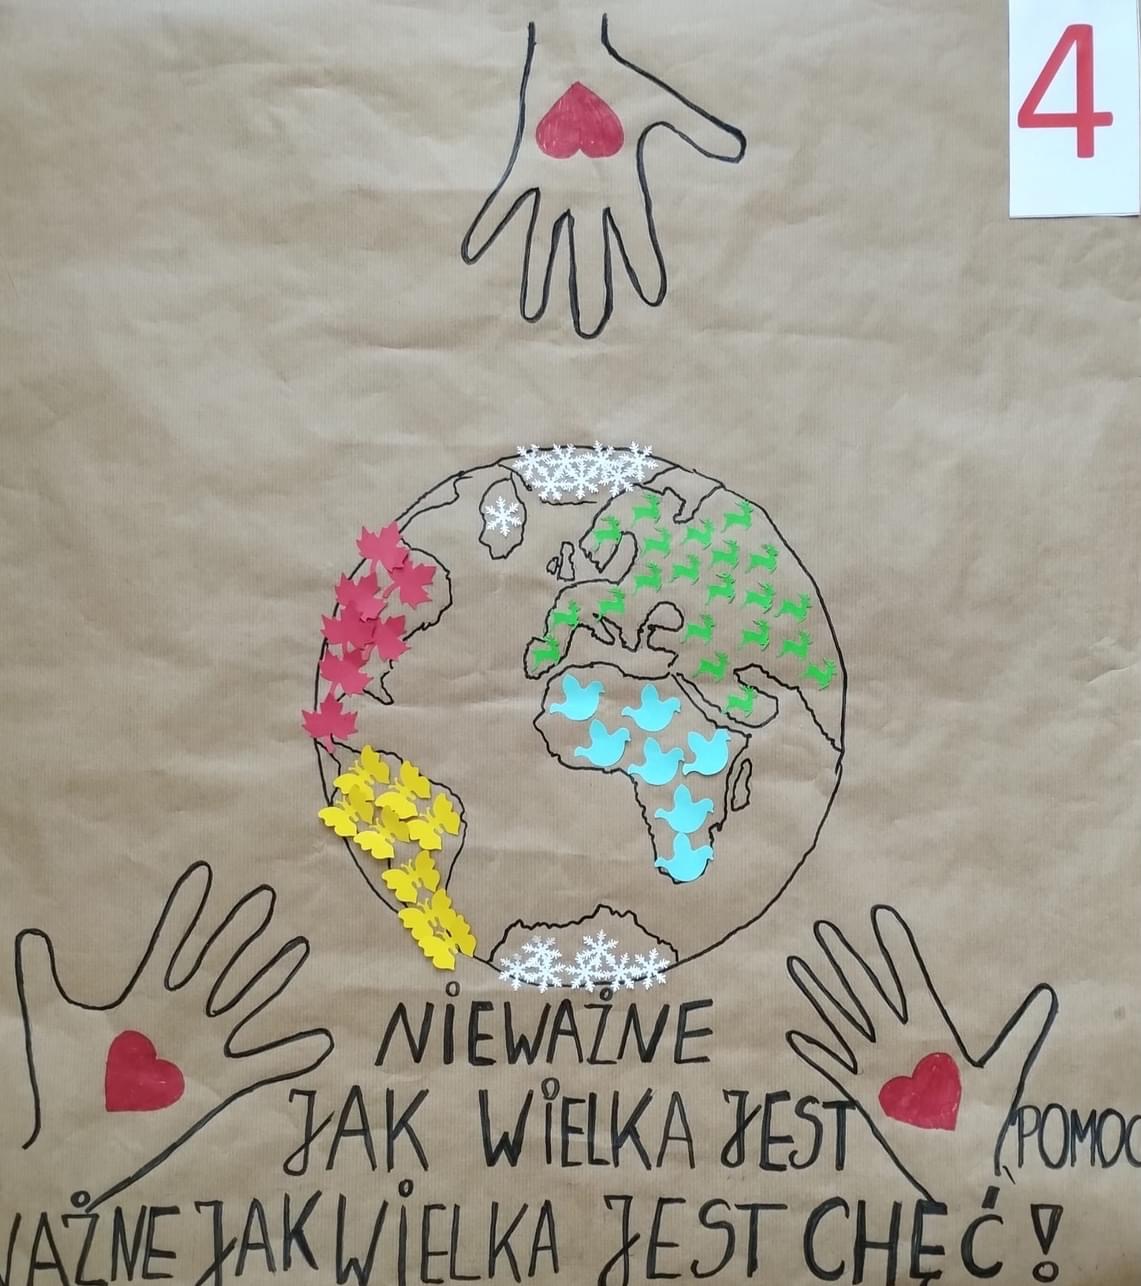 4
NIEWAŻNE
JAK WIELKA JEST POMOC
WAŻNE JAK WIELKA JEST CHĘĆ!